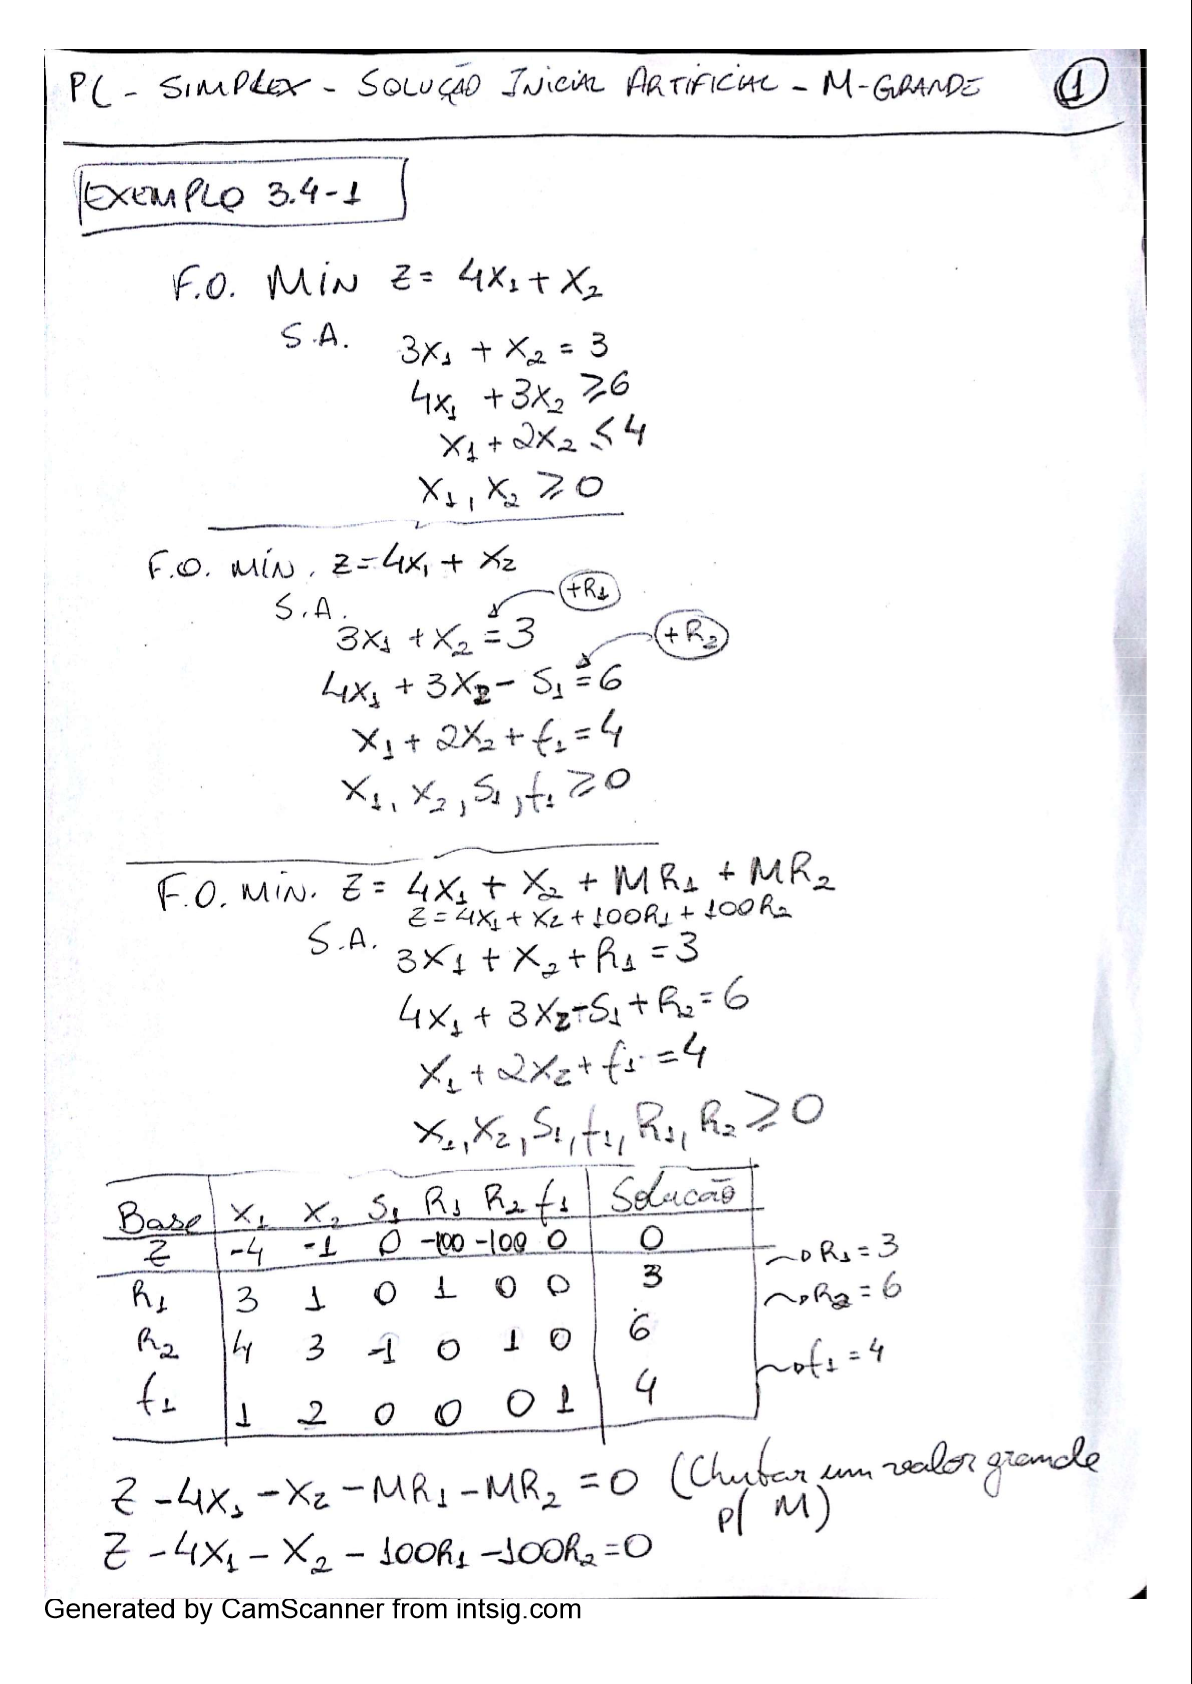 PL - SIMPLEX - SOLUÇÃO INICIAL ARTIFICIAL - M-GRANDE 1
EXEMPLO 3.4-1
F.O. MIN Z = 4X1 + X2
S.A. 3X1 + X2 = 3
4X1 + 3X2 ≥ 6
X1 + 2X2 ≤ 4
X1, X2 ≥ 0
F.O. MIN. Z = 4X1 + X2
S.A. +R1
3X1 + X2 = 3 +R2
4X1 + 3X2 - S1 = 6
X1 + 2X2 + f1 = 4
X1, X2, S1, f1 ≥ 0
F.O. MIN. Z = 4X1 + X2 + MR1 + MR2
Z = 4X1 + X2 + 100R1 + 100R2
S.A. 3X1 + X2 + R1 = 3
4X1 + 3X2 - S1 + R2 = 6
X1 + 2X2 + f1 = 4
X1, X2, S1, f1, R1, R2 ≥ 0
Base X1 X2 S1 R1 R2 f1 Solucão
Z -4 -1 0 -100 -100 0 0
R1 3 1 0 1 0 0 3 → R1 = 3
R2 4 3 -1 0 1 0 6 → R2 = 6
f1 1 2 0 0 0 1 4 → f1 = 4
Z - 4X1 - X2 - MR1 - MR2 = 0 (Chutar um valor grande
p/ M)
Z - 4X1 - X2 - 100R1 - 100R2 = 0
Generated by CamScanner from intsig.com